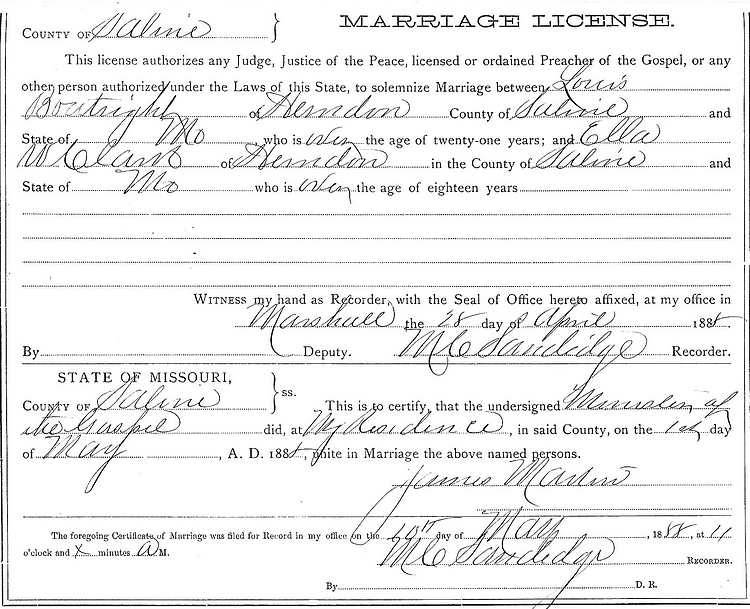 MARRIAGE LICENSE.
COUNTY OF Saline
This license authorizes any Judge, Justice of the Peace, licensed or ordained Preacher of the Gospel, or any
other person authorized under the Laws of this State, to solemnize Marriage between Louis
Boutright of Herndon County of Saline and
State of Mo, who is over the age of twenty-one years; and Ella
W Clark of Herndon in the County of Saline and
State of Mo who is over the age of eighteen years
WITNESS my hand as Recorder, with the Seal of Office hereto affixed, at my office in
Marshall the 28 day of April 1888.
By Deputy. M C Sandidge Recorder.
STATE OF MISSOURI,
COUNTY OF Saline ss. This is to certify, that the undersigned Minister of
the Gospel did, at My Residence, in said County, on the 1st day
of May, A. D. 1888, unite in Marriage the above named persons.
James Martin
The foregoing Certificate of Marriage was filed for Record in my office on the 10th day of May, 1888, at 11
o'clock and x minutes a M. M C Sandidge RECORDER.
By D. R.